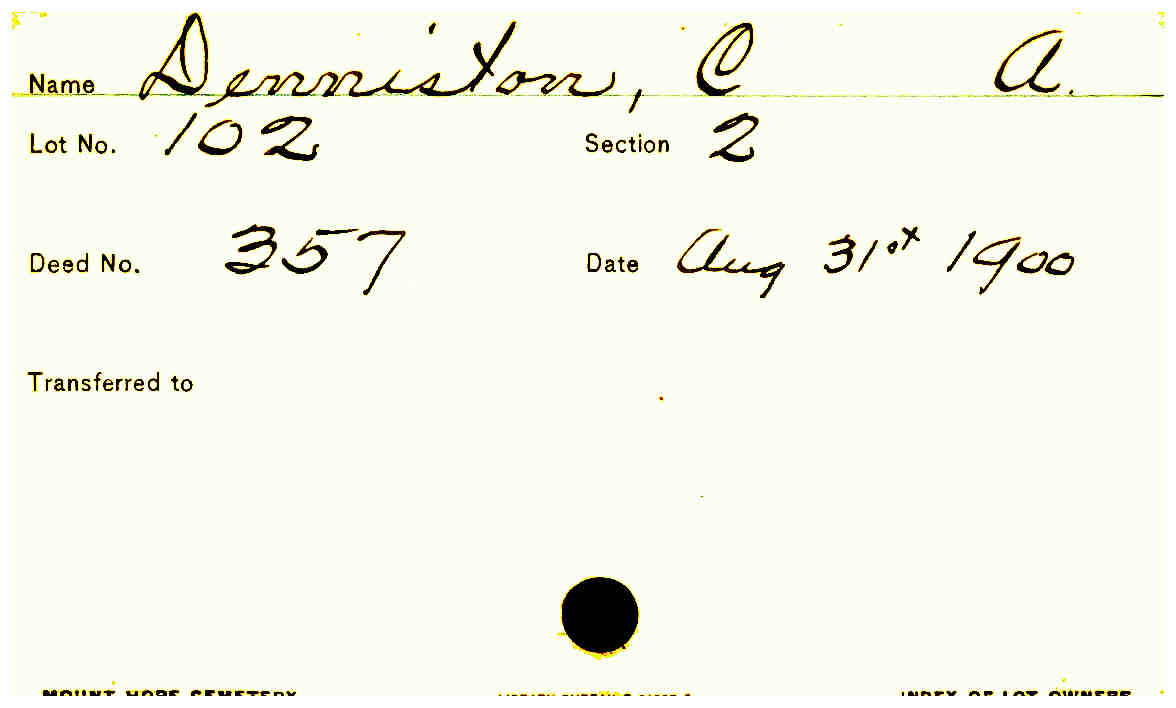 Name Denniston, C A.
Lot No. 102 Section 2
Deed No. 357 Date Aug 31st 1900
Transferred to
MOUNT HOPE CEMETERY INDEX OF LOT OWNERS